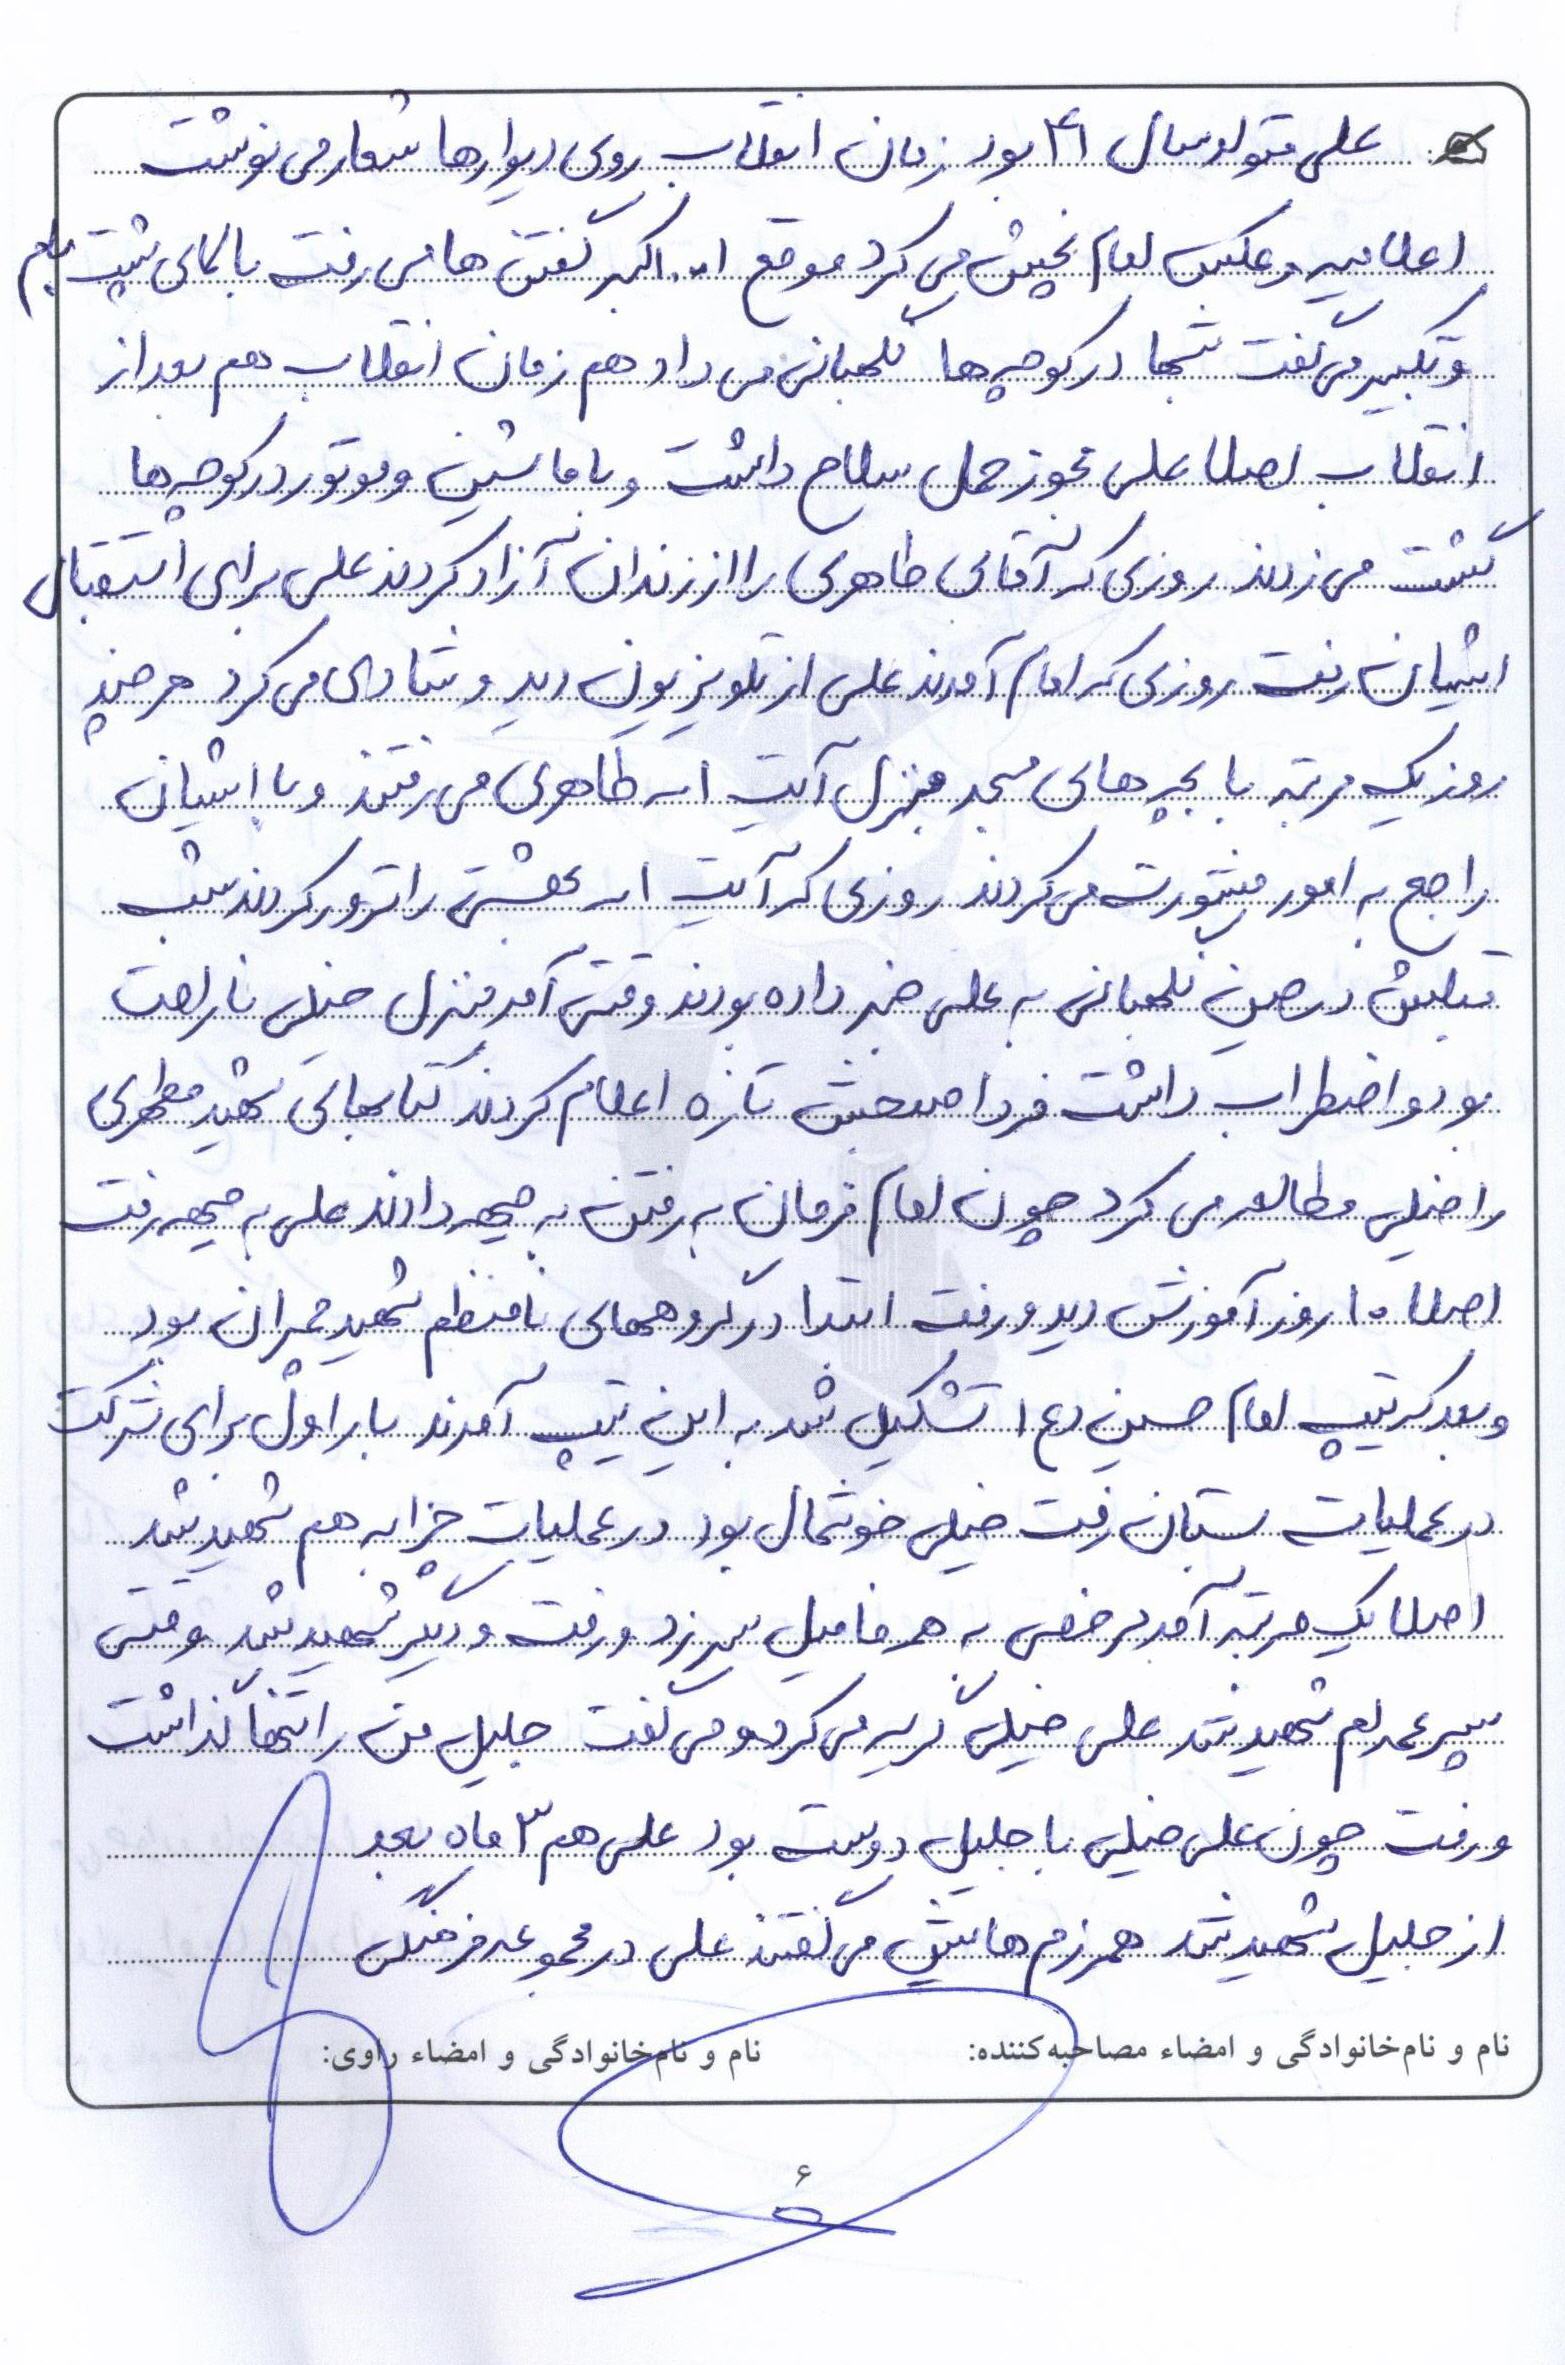 علی متولد سال ۴۱ بود زمان انقلاب روی دیوارها شعار می نوشت
اعلامیه و عکس امام پخش می کرد موقع ا... اکبر گفتن ها می رفت بالای پشت بام
و تکبیر می گفت شبها در کوچه ها نگهبانی می داد هم زمان انقلاب هم بعد از
انقلاب اصلا علی مجوز حمل سلاح داشت و با ماشین و موتور در کوچه ها
گشت می زدند روزی که آقای طاهری را از زندان آزاد کردند علی برای استقبال
ایشان رفت روزی که امام آمدند علی از تلویزیون دید و شادی می کرد هر چند
روز یک مرتبه با بچه های مسجد منزل آیت ا... طاهری می رفتند و با ایشان
راجع به امور مشورت می کردند روزی که آیت ا... بهشتی را ترور کردند شب
قبلش در حین نگهبانی به علی خبر داده بودند وقتی آمد منزل خیلی ناراحت
بود و اضطراب داشت فردا صبحش تازه اعلام کردند کتابهای شهید مطهری
را خیلی مطالعه می کرد چون امام فرمان به رفتن به جبهه دادند علی به جبهه رفت
اصلا ۱۰ روز آموزش دید و رفت ابتدا در گروههای نامنظم شهید چمران بود
و بعد که تیپ امام حسین (ع) تشکیل شد به این تیپ آمدند بار اول برای شرکت
در عملیات بستان رفت خیلی خوشحال بود در عملیات چزابه هم شهید شد
اصلا یک مرتبه آمد مرخصی به همه فامیل سر زد و رفت و دیگر شهید شد وقتی
پسر عمه ام شهید شد علی خیلی گریه می کرد و می گفت جلیل من را تنها گذاشت
و رفت چون علی خیلی با جلیل دوست بود علی هم ۳ ماه بعد
از جلیل شهید شد همرزم هایش می گفتند علی در مجموعه فرهنگی
نام و نام‌خانوادگی و امضاء مصاحبه‌کننده: نام و نام‌خانوادگی و امضاء راوی:
۶